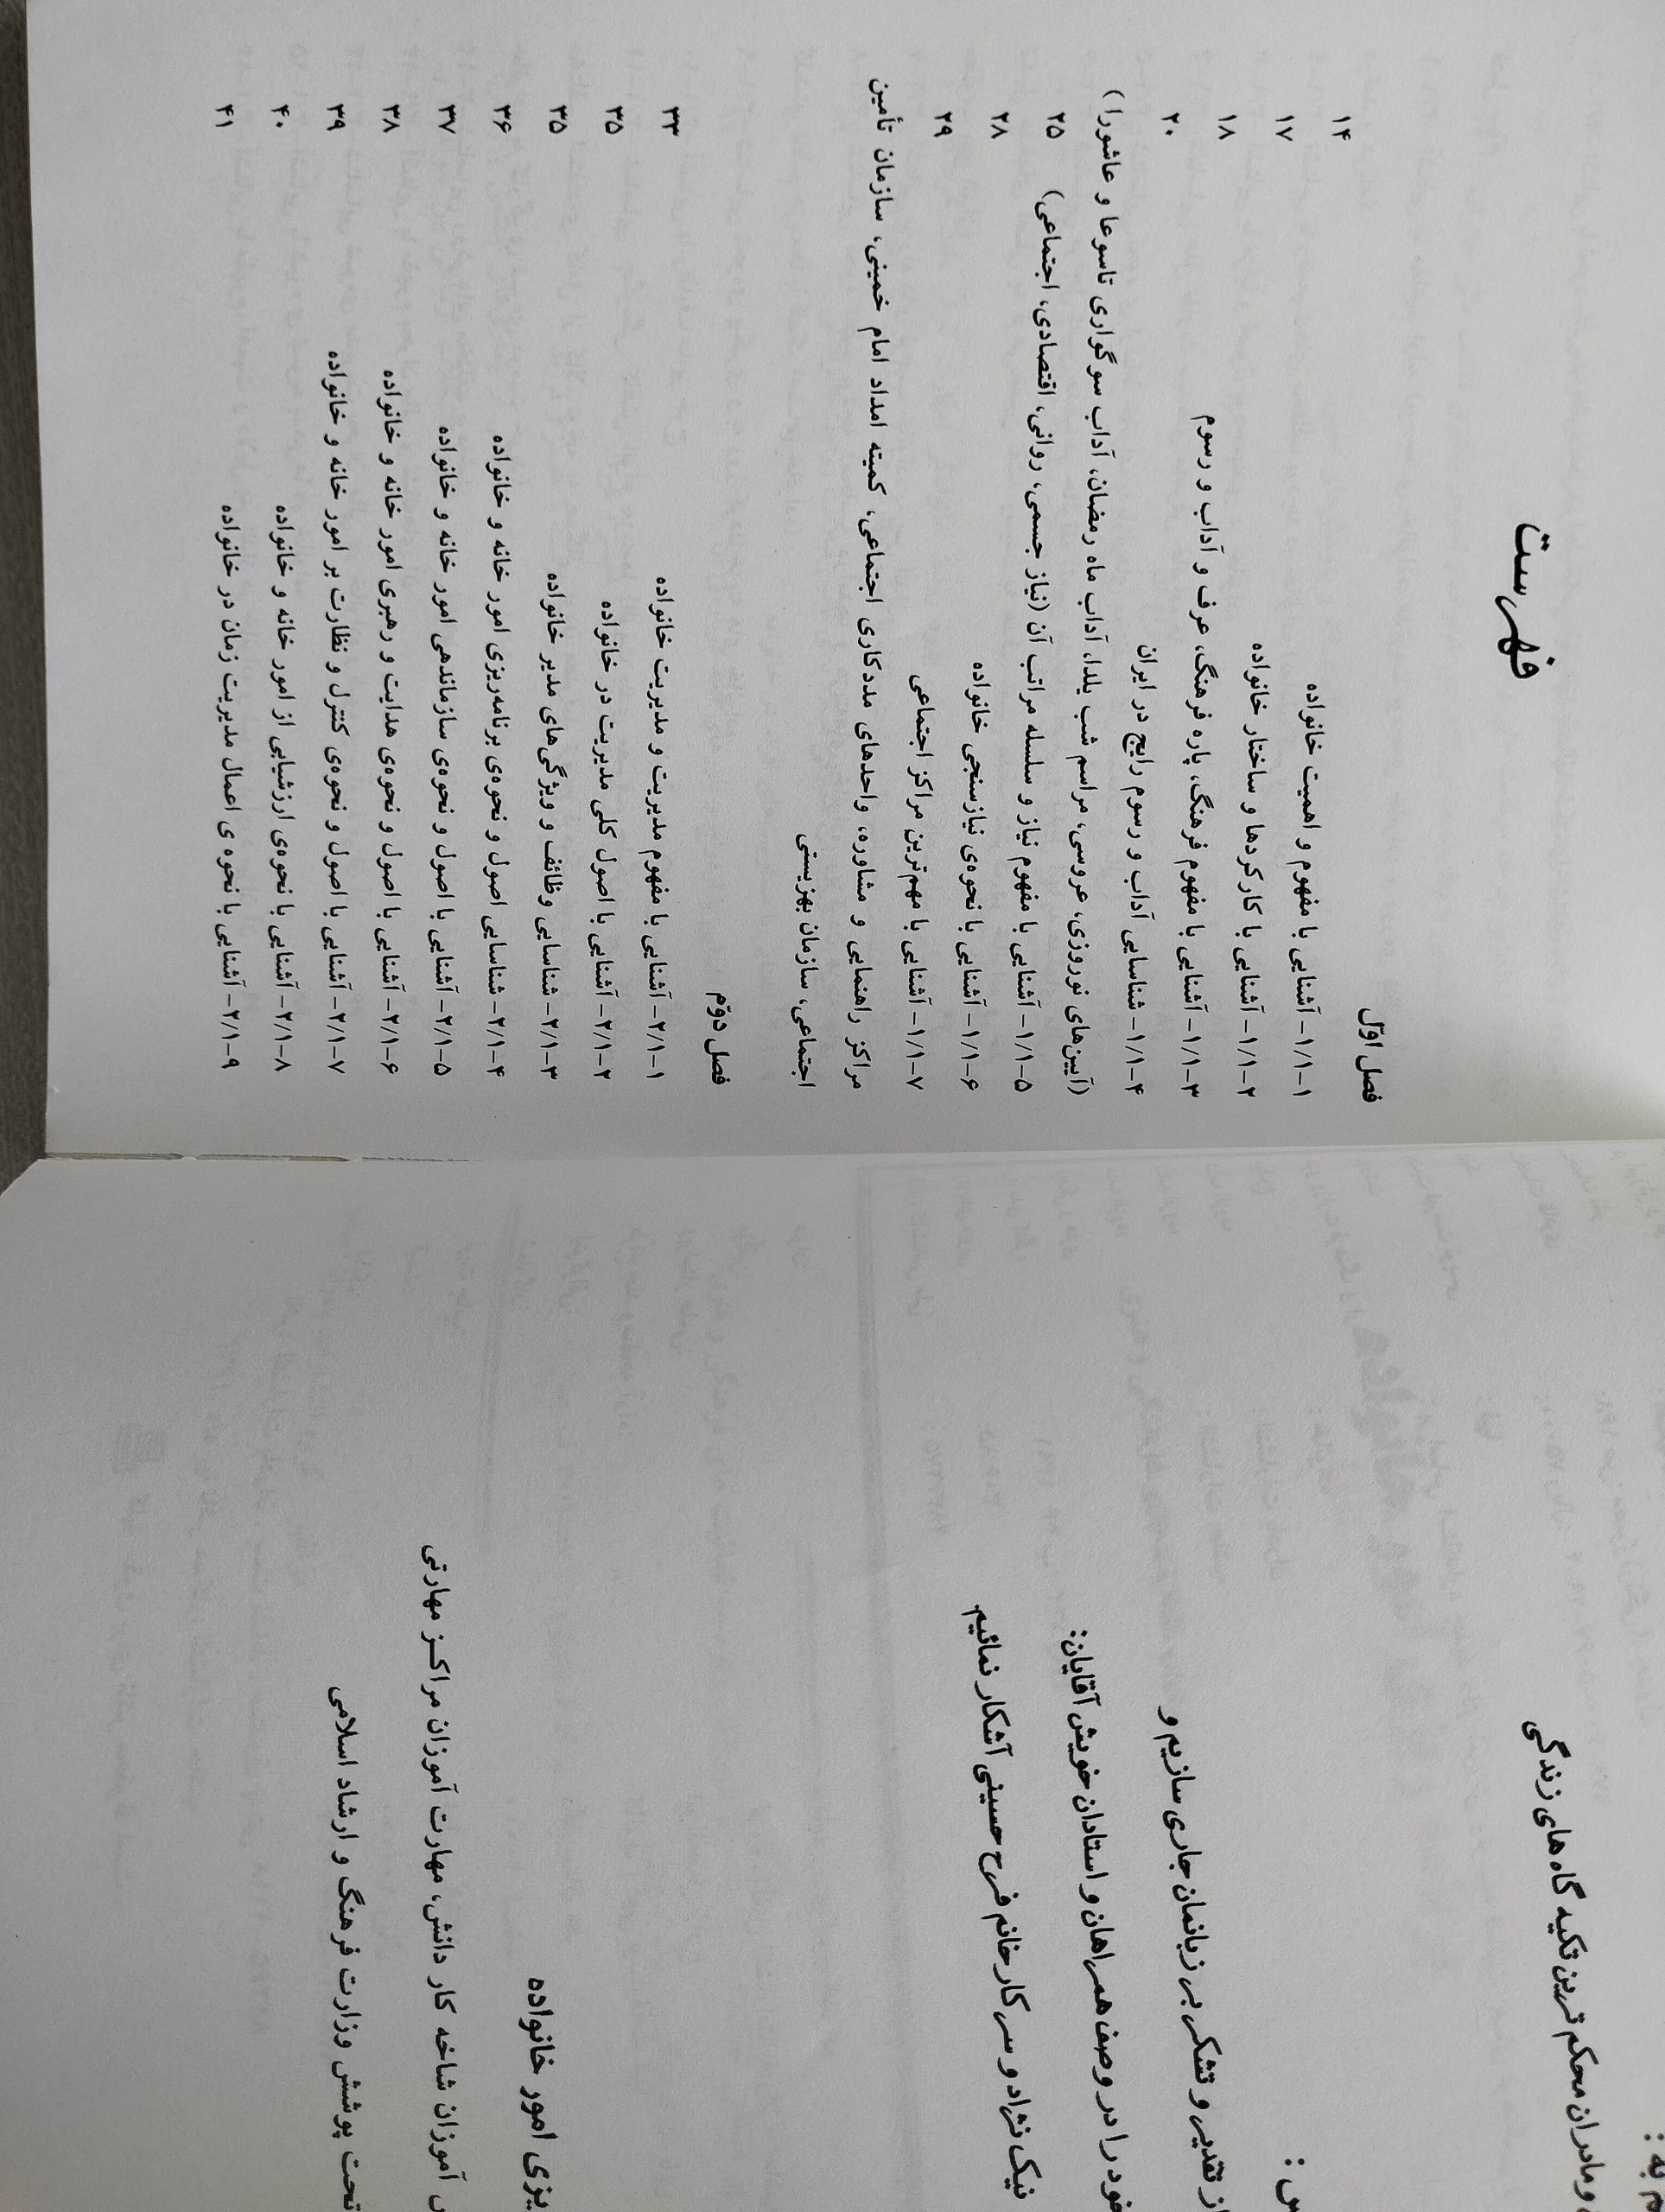 فهرست
فصل اوّل
۱/۱-۱- آشنایی با مفهوم و اهمیت خانواده ۱۴
۱/۱-۲- آشنایی با کارکردها و ساختار خانواده ۱۷
۱/۱-۳- آشنایی با مفهوم فرهنگ، پاره فرهنگ، عرف و آداب و رسوم ۱۸
۱/۱-۴- شناسایی آداب و رسوم رایج در ایران ۲۰
(آیین‌های نوروزی، عروسی، مراسم شب یلدا، آداب ماه رمضان، آداب سوگواری تاسوعا و عاشورا)
۱/۱-۵- آشنایی با مفهوم نیاز و سلسله مراتب آن (نیاز جسمی، روانی، اقتصادی، اجتماعی) ۲۵
۱/۱-۶- آشنایی با نحوه‌ی نیازسنجی خانواده ۲۸
۱/۱-۷- آشنایی با مهم‌ترین مراکز اجتماعی ۲۹
مراکز راهنمایی و مشاوره، واحدهای مددکاری اجتماعی، کمیته امداد امام خمینی، سازمان تأمین
اجتماعی، سازمان بهزیستی
فصل دوّم
۲/۱-۱- آشنایی با مفهوم مدیریت و مدیریت خانواده ۳۳
۲/۱-۲- آشنایی با اصول کلی مدیریت در خانواده ۳۵
۲/۱-۳- شناسایی وظائف و ویژگی‌های مدیر خانواده ۳۵
۲/۱-۴- شناسایی اصول و نحوه‌ی برنامه‌ریزی امور خانه و خانواده ۳۶
۲/۱-۵- آشنایی با اصول و نحوه‌ی سازماندهی امور خانه و خانواده ۳۷
۲/۱-۶- آشنایی با اصول و نحوه‌ی هدایت و رهبری امور خانه و خانواده ۳۸
۲/۱-۷- آشنایی با اصول و نحوه‌ی کنترل و نظارت بر امور خانه و خانواده ۳۹
۲/۱-۸- آشنایی با نحوه‌ی ارزشیابی از امور خانه و خانواده ۴۰
۲/۱-۹- آشنایی با نحوه ی اعمال مدیریت زمان در خانواده ۴۱
به :
و مادران محکم ترین تکیه گاه های زندگی
تقدیر و تشکر بر زبانمان جاری سازیم و
خود را در وصف همراهان و استادان خویش آقایان:
نیک نژاد و سرکار خانم فرح حسینی آشکار نمائیم.
امور خانواده
آموزان شاخه کار دانش، مهارت آموزان مراکز مهارتی
تحت پوشش وزارت فرهنگ و ارشاد اسلامی